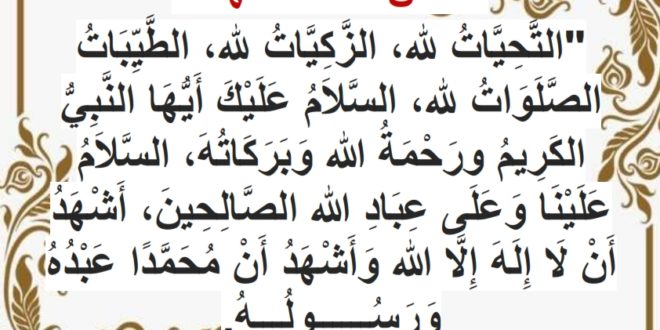 "التَّحِيَّاتُ لله، الزَّكِيَّاتُ لله، الطَّيِّبَاتُ
الصَّلَوَاتُ لله، السَّلَامُ عَلَيْكَ أَيُّهَا النَّبِيُّ
الكَرِيمُ ورَحْمَةُ الله وَبَرَكَاتُهَ، السَّلَامُ
عَلَيْنَا وَعَلَى عِبَادِ الله الصَّالِحِينَ، أَشْهَدُ
أَنْ لَا إِلَهَ إِلَّا الله وَأَشْهَدُ أَنْ مُحَمَّدًا عَبْدُهُ
وَرَسُــــولُــــهُ.